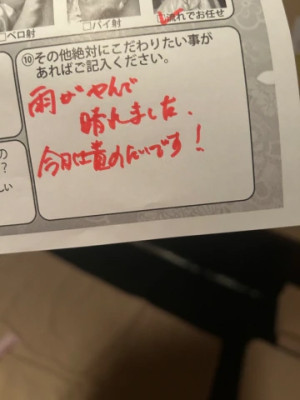 □ベロ射
□パイ射
流れでお任せ
⑩その他絶対にこだわりたい事が
あればご記入ください。
雨がやんで
晴れました.
今日は責めたいです!
の
?
しい